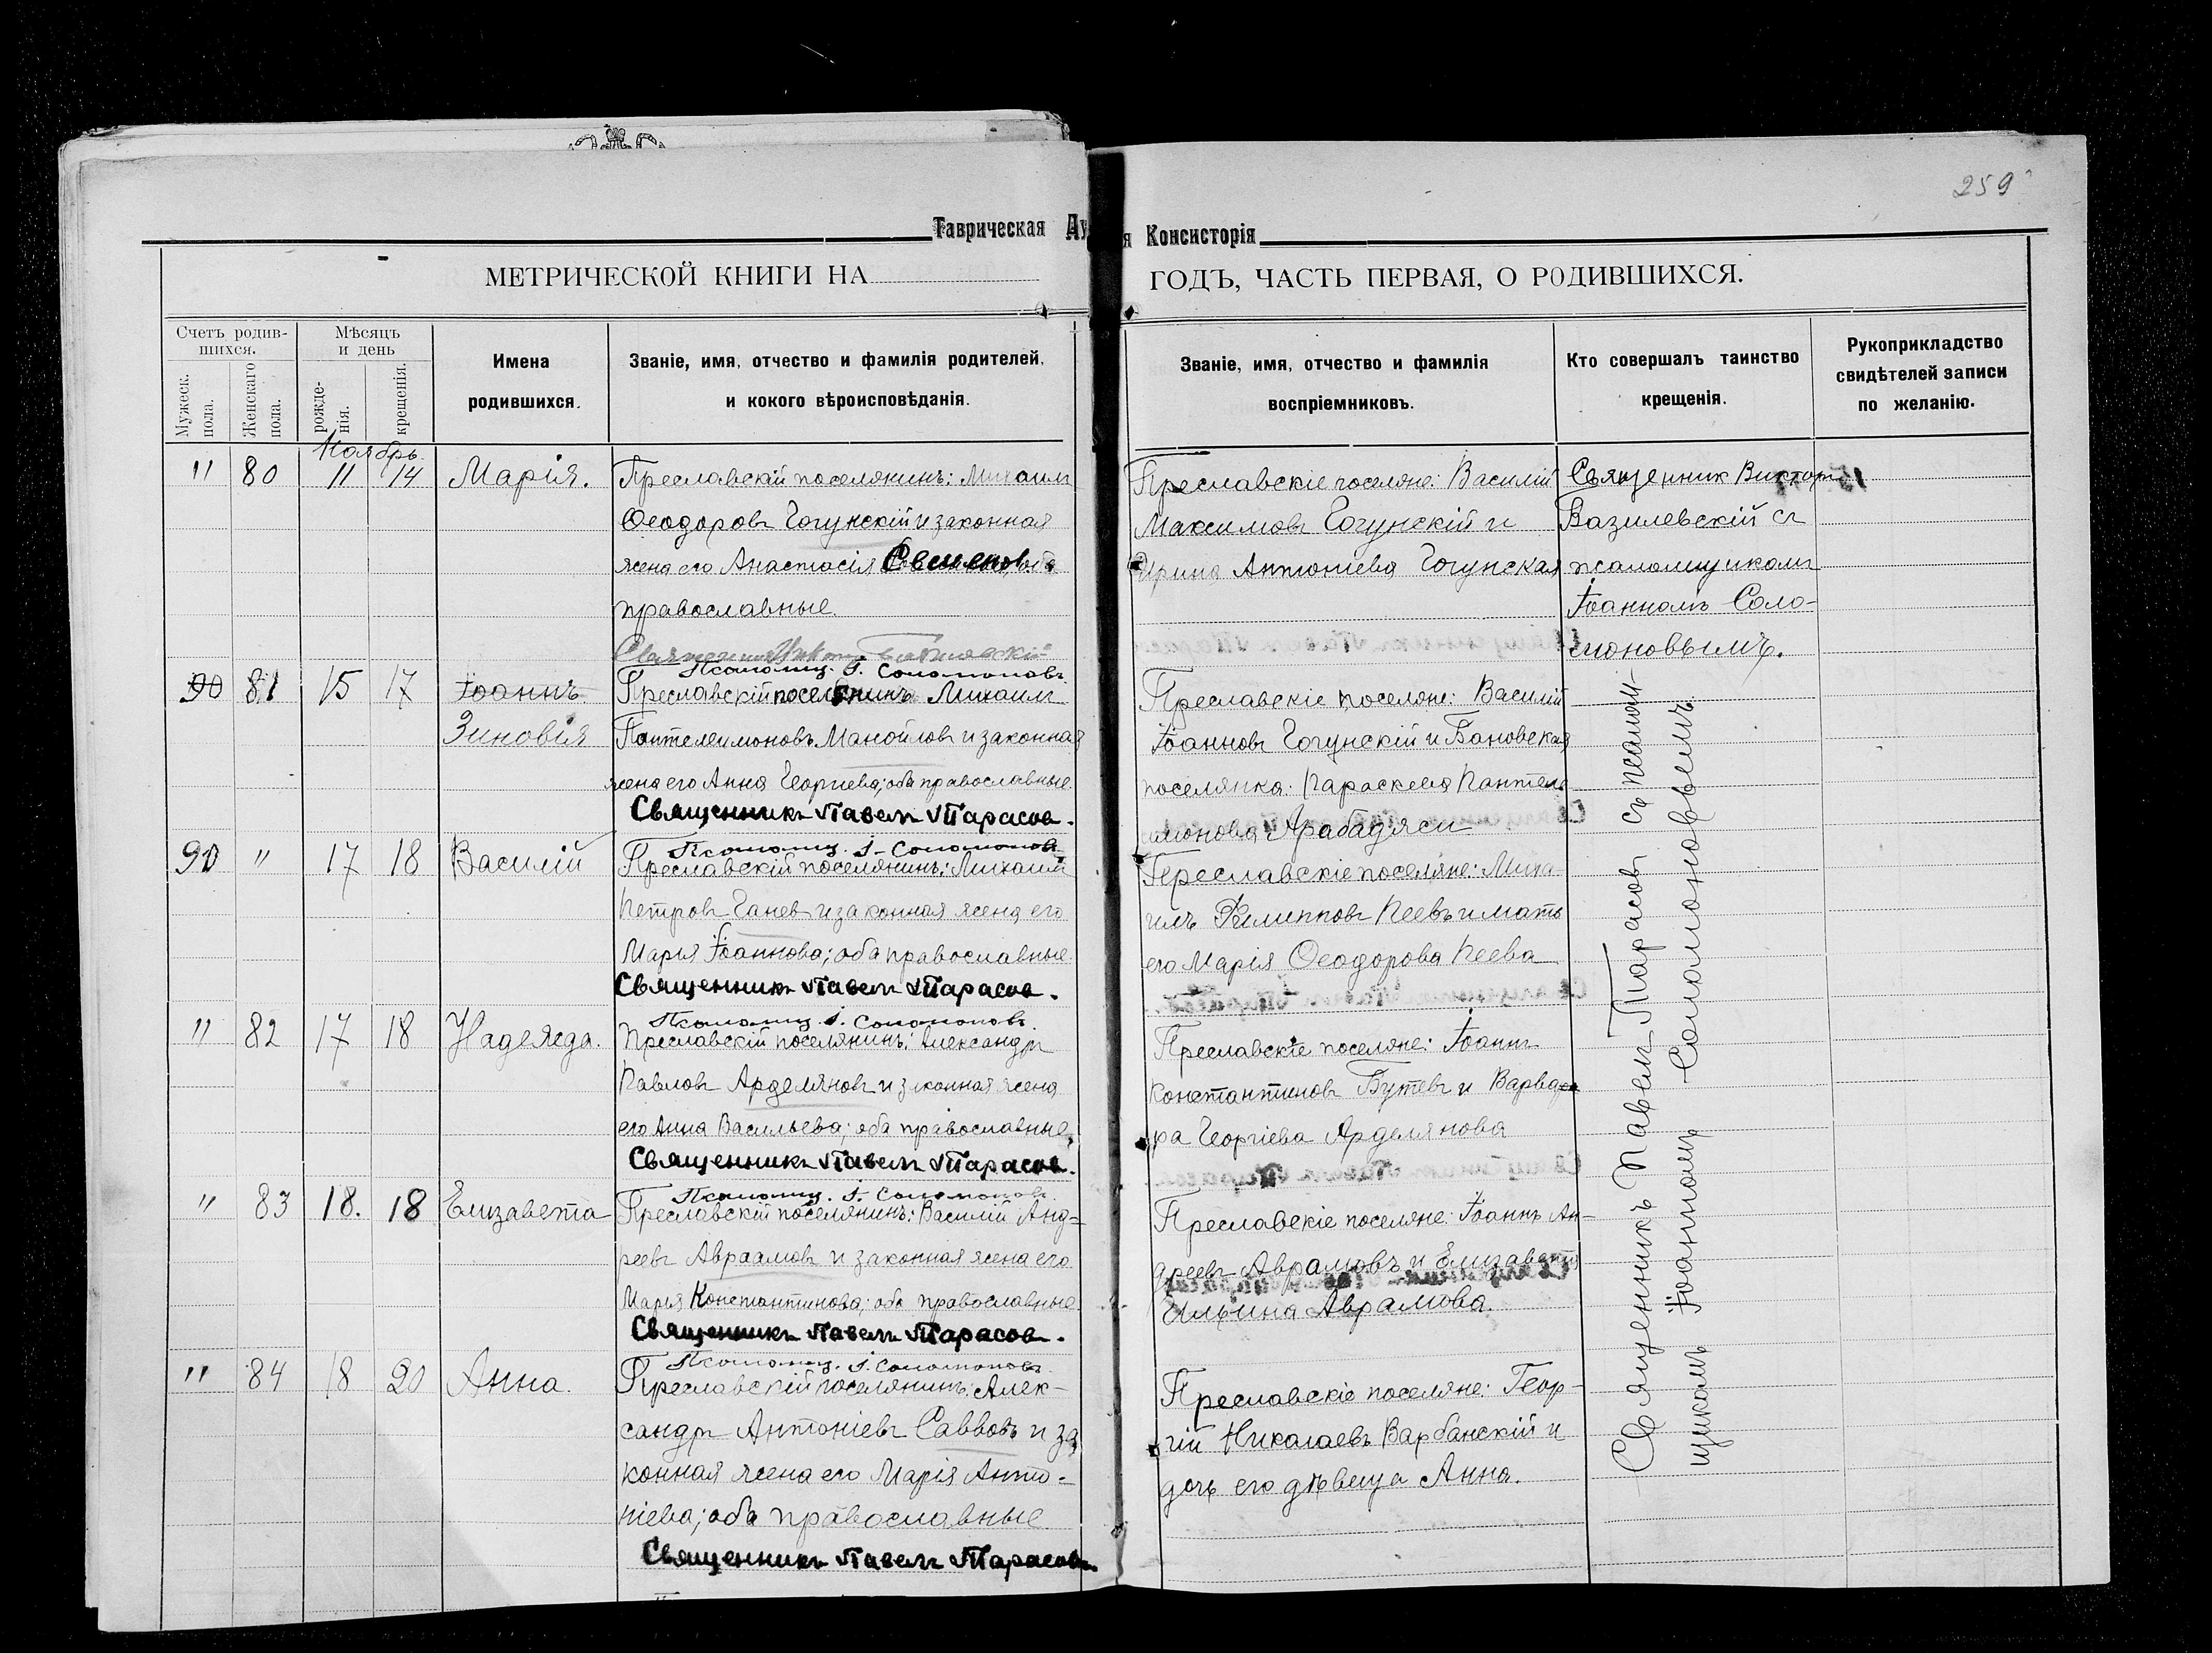 259
Таврическая Ду
я Консисторія
МЕТРИЧЕСКОЙ КНИГИ НА
ГОДЪ, ЧАСТЬ ПЕРВАЯ, О РОДИВШИХСЯ.
Счетъ родив-
шихся.
Мужеск.
пола.
Женскаго
пола.
Мѣсяцъ
и день
рожде-
нія.
крещенія.
Имена
родившихся.
Званіе, имя, отчество и фамилія родителей,
и кокого вѣроисповѣданія.
Званіе, имя, отчество и фамилія
воспріемниковъ.
Кто совершалъ таинство
крещенія.
Рукоприкладство
свидѣтелей записи
по желанію.
Ноябрь
" 80 11 14 Марія.
Преславскій поселянинъ: Михаилъ
Ѳеодоровъ Гогунскій и законная
жена его Анастасія Семенова
православные.
Псаломщ. І. Соломоновъ
Преславскіе поселяне: Василій
Максимовъ Гогунскій и
Ирина Антоніева Гогунская
Священник Викторъ
Базилевскій съ
псаломщикомъ
Іоанномъ Соло-
моновымъ.
90 81 15 17 Іоаннъ
Зиновія
Преславскій поселянинъ Михаилъ
Пантелеимоновъ Манойловъ и законная
жена его Анна Георгіева; оба православные.
Священникъ Павелъ Тарасов.
Псаломщ. І. Соломоновъ
Преславскіе поселяне: Василій
Іоанновъ Гогунскій и Бановская
поселянка: Параскева Пантеле
имонова Арабаджи
90 " 17 18 Василій
Преславскій поселянинъ: Михаилъ
Петровъ Ганев и законная жена его
Марія Іоаннова; оба православные
Священникъ Павелъ Тарасов.
Псаломщ. І. Соломоновъ
Преславскіе поселяне: Миха-
илъ Филипповъ Пеевъ и мать
его Марія Ѳеодорова Пеева
" 82 17 18 Надежда.
Преславскій поселянинъ: Александръ
Павловъ Арделяновъ и законная жена
его Анна Васильева; оба православные,
Священникъ Павелъ Тарасов.
Псаломщ. І. Соломоновъ
Преславскіе поселяне: Іоаннъ
Константиновъ Бутевъ и Варва
ра Георгіева Арделянова
" 83 18. 18 Елизавета
Преславскій поселянинъ: Василій Анд-
реевъ Авраамовъ и законная жена его
Марія Константинова; оба православные
Священникъ Павелъ Тарасов.
Псаломщ. І. Соломоновъ
Преславскіе поселяне: Іоаннъ Ан-
дреевъ Аврамовъ и Елизавета
Ильина Аврамова.
" 84 18 20 Анна.
Преславскій поселянинъ: Алек-
сандръ Антоніевъ Савовъ и за
конная жена его Марія Анто-
ніева; оба православные
Священникъ Павелъ Тарасовъ
Преславскіе поселяне: Геор-
гій Николаевъ Варбанскій и
дочь его дѣвица Анна.
Священникъ Павелъ Тарасовъ съ псалом-
щикомъ Іоанномъ Соломоновымъ